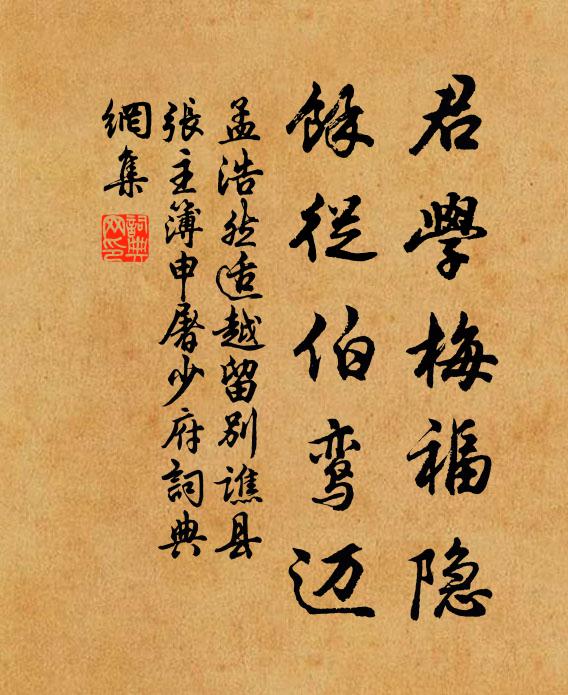 君學梅福隐
餘従伯鸾迈
孟浩然适越留别譙县
張主簿申屠少府詞典
網集
詞典網印